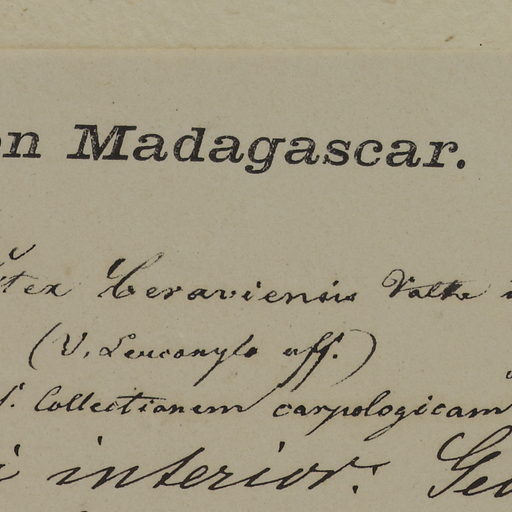 on Madagascar.
itex beraviensis Vatke
(V. Leucoxylo aff.)
Collectionem carpologicam
i interior. Geo